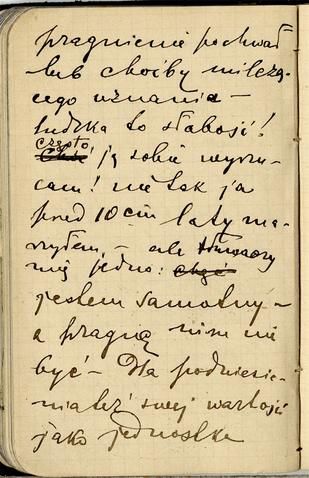 pragnienie pochwał
lub choćby milczą-
cego uznania –
ludzka to słabość!
często
ją sobie wyrzu-
cam! nie tak ja
przed 10cin laty ma-
rzyłem, – ale tłumaczy
mię jedno:
jestem samotny –
a pragnę nim nie
być – Dla podniesie-
nia też swej wartości
jako jednostka